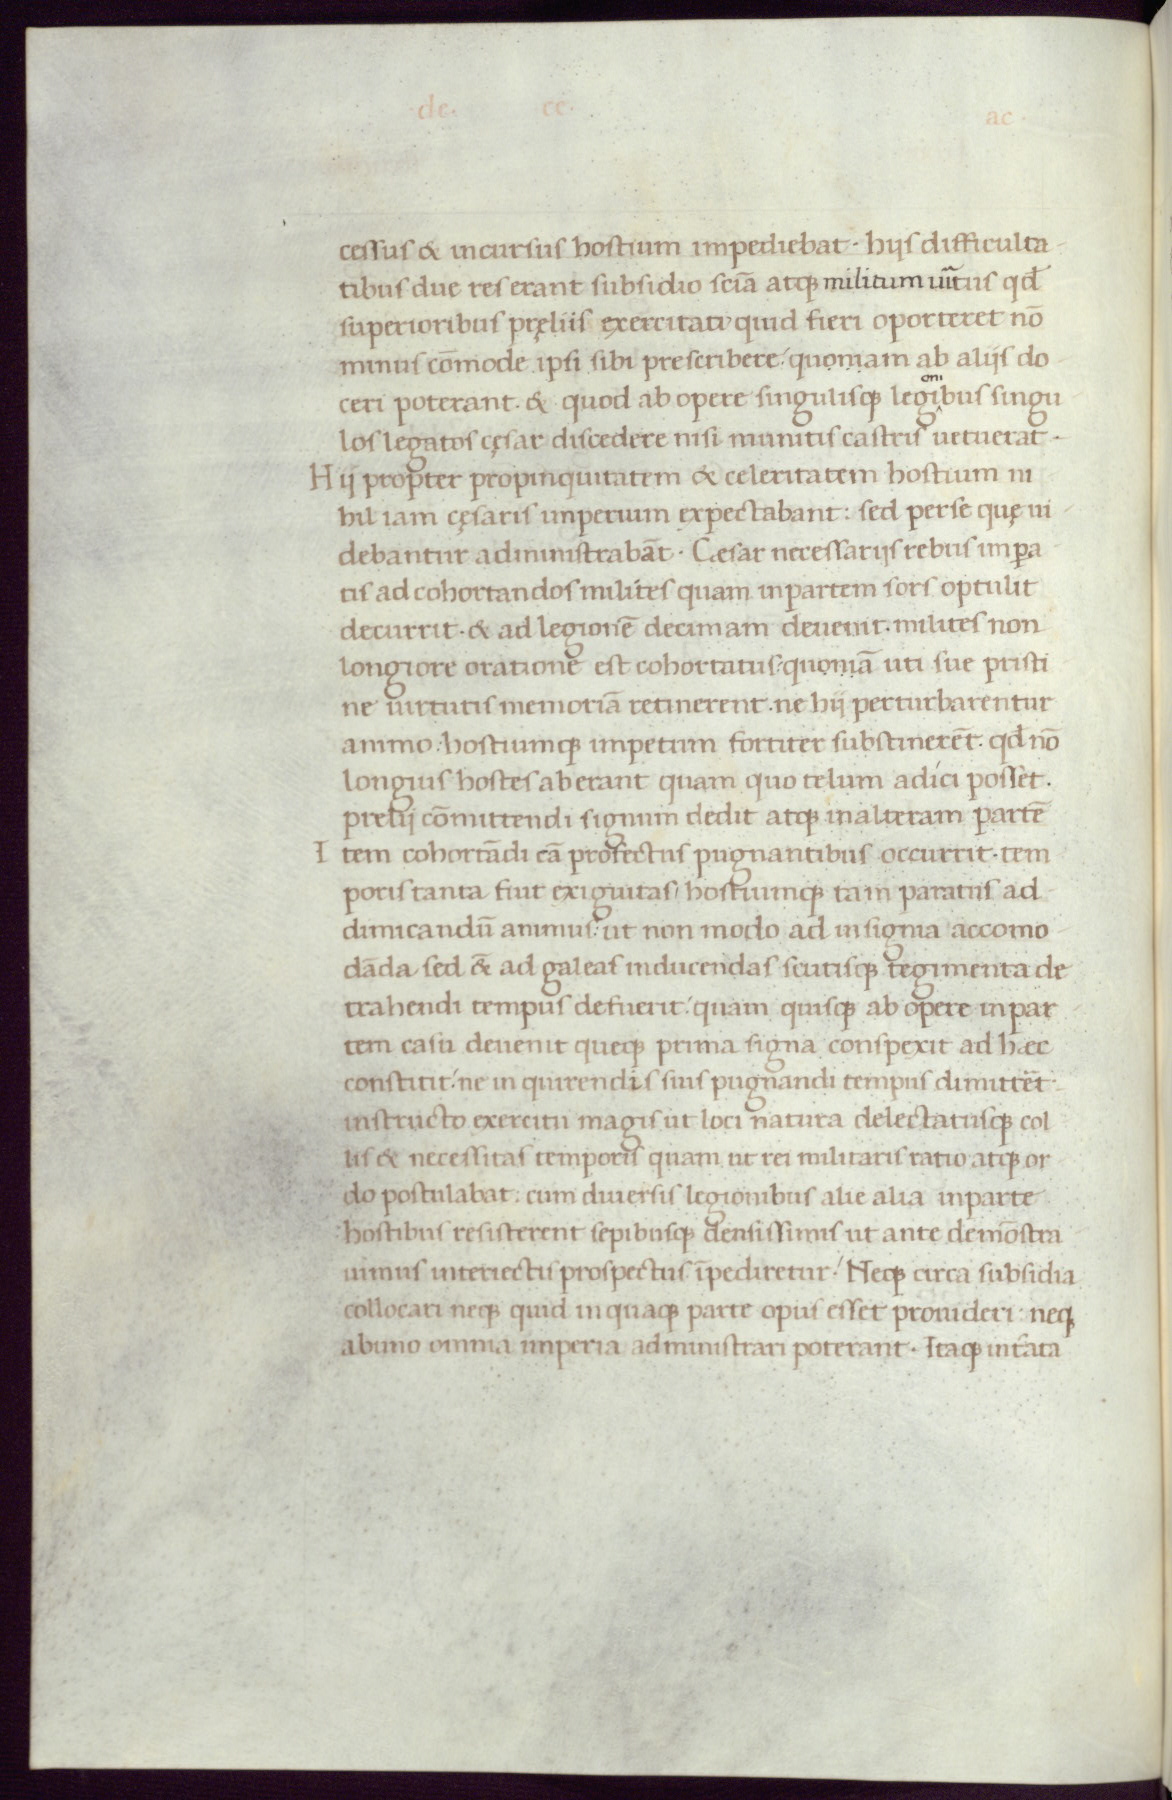 de. ce. ac
cessus & incursus hostium impediebat. hijs difficulta
tibus due res erant subsidio sciā atq; militum uīrtus qđ
superioribus pręliis exercitati quid fieri oporteret nō
minus cōmode ipsi sibi prescribere: quoniam ab alijs do
ceri poterant. & quod ab opere singulisq; legi^onibus singu
los legatos cęsar discedere nisi munitis castris uetuerat.
Hij propter propinquitatem & celeritatem hostium ni
hil iam cęsaris imperium expectabant: sed per se quę ui
debantur administrabāt. Cæsar necessarijs rebus impa
tis ad cohortandos milites quam in partem sors optulit
decurrit. & ad legionē decimam deuenit. milites non
longiore oratione est cohortatus: quoniā uti sue pristi
ne uirtutis memoriā retinerent. ne hij perturbarentur
animo: hostiumq; impetum fortiter substinerēt. qđ nō
longius hostes aberant quam quo telum adíci posset.
prelij cōmittendi signum dedit atq; in alteram partē
Item cohortādi cā profectus pugnantibus occurrit. tem
poris tanta fuit exiguitas hostiumq; tam paratus ad
dimicandū animus: ut non modo ad insignia accomo
dāda sed & ad galeas inducendas scutisq; tegimenta de
trahendi tempus defuerit: quam quisq; ab opere in par
tem casu deuenit queq; prima signa conspexit ad hæc
constitit: ne in quirendis suis pugnandi tempus dimittēt.
instructo exercitu magis ut loci natura delectatusq; col
lis & necessitas temporis quam ut rei militaris ratio atq; or
do postulabat: cum diuersis legionibus alie alia in parte
hostibus resisterent sepibusq; densissimis ut ante demōstra
uimus interiectis prospectus īpediretur: Neq; circa subsidia
collocari neq; quid in quaq; parte opus esset prouideri: neq;
ab uno omnia imperia administrari poterant. Itaq; in tāta